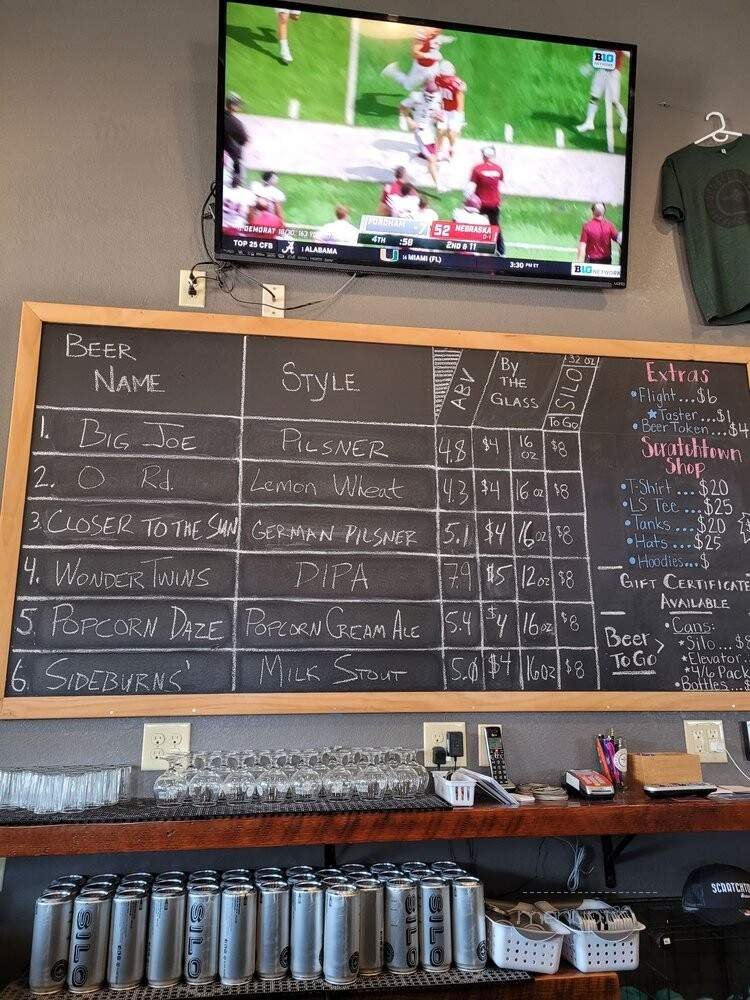 B1G
NETWORK
FORDHAM 7 52 NEBRASKA
4TH :58 2ND & 11
TOP 25 CFB A 1 ALABAMA U MIAMI (FL) 3:30 PM ET B1G NETWORK
BEER NAME
STYLE
ABV
BY THE GLASS
32 OZ
SILO
TO GO
1. BIG JOE PILSNER 4.8 $4 16 oz $8
2. O Rd. Lemon Wheat 4.3 $4 16 oz $8
3. CLOSER TO THE SUN GERMAN PILSNER 5.1 $4 16 oz $8
4. WONDER TWINS DIPA 7.9 $5 12 oz $8
5. POPCORN DAZE POPCORN CREAM ALE 5.4 $4 16 oz $8
6. SIDEBURNS' MILK STOUT 5.0 $4 16 oz $8
Extras
• Flight... $6
★ Taster... $1
• Beer Token... $4
Scratchtown
Shop
• T-Shirt... $20
• LS Tee... $25
• Tanks... $20
• Hats... $25
• Hoodies... $
GIFT CERTIFICATE
AVAILABLE
Beer >
To Go
• Cans:
* Silo... $8
* Elevator
* 4/6 Pack
• Bottles... $
SILO
SILO
SILO
SILO
SILO
SCRATCHT